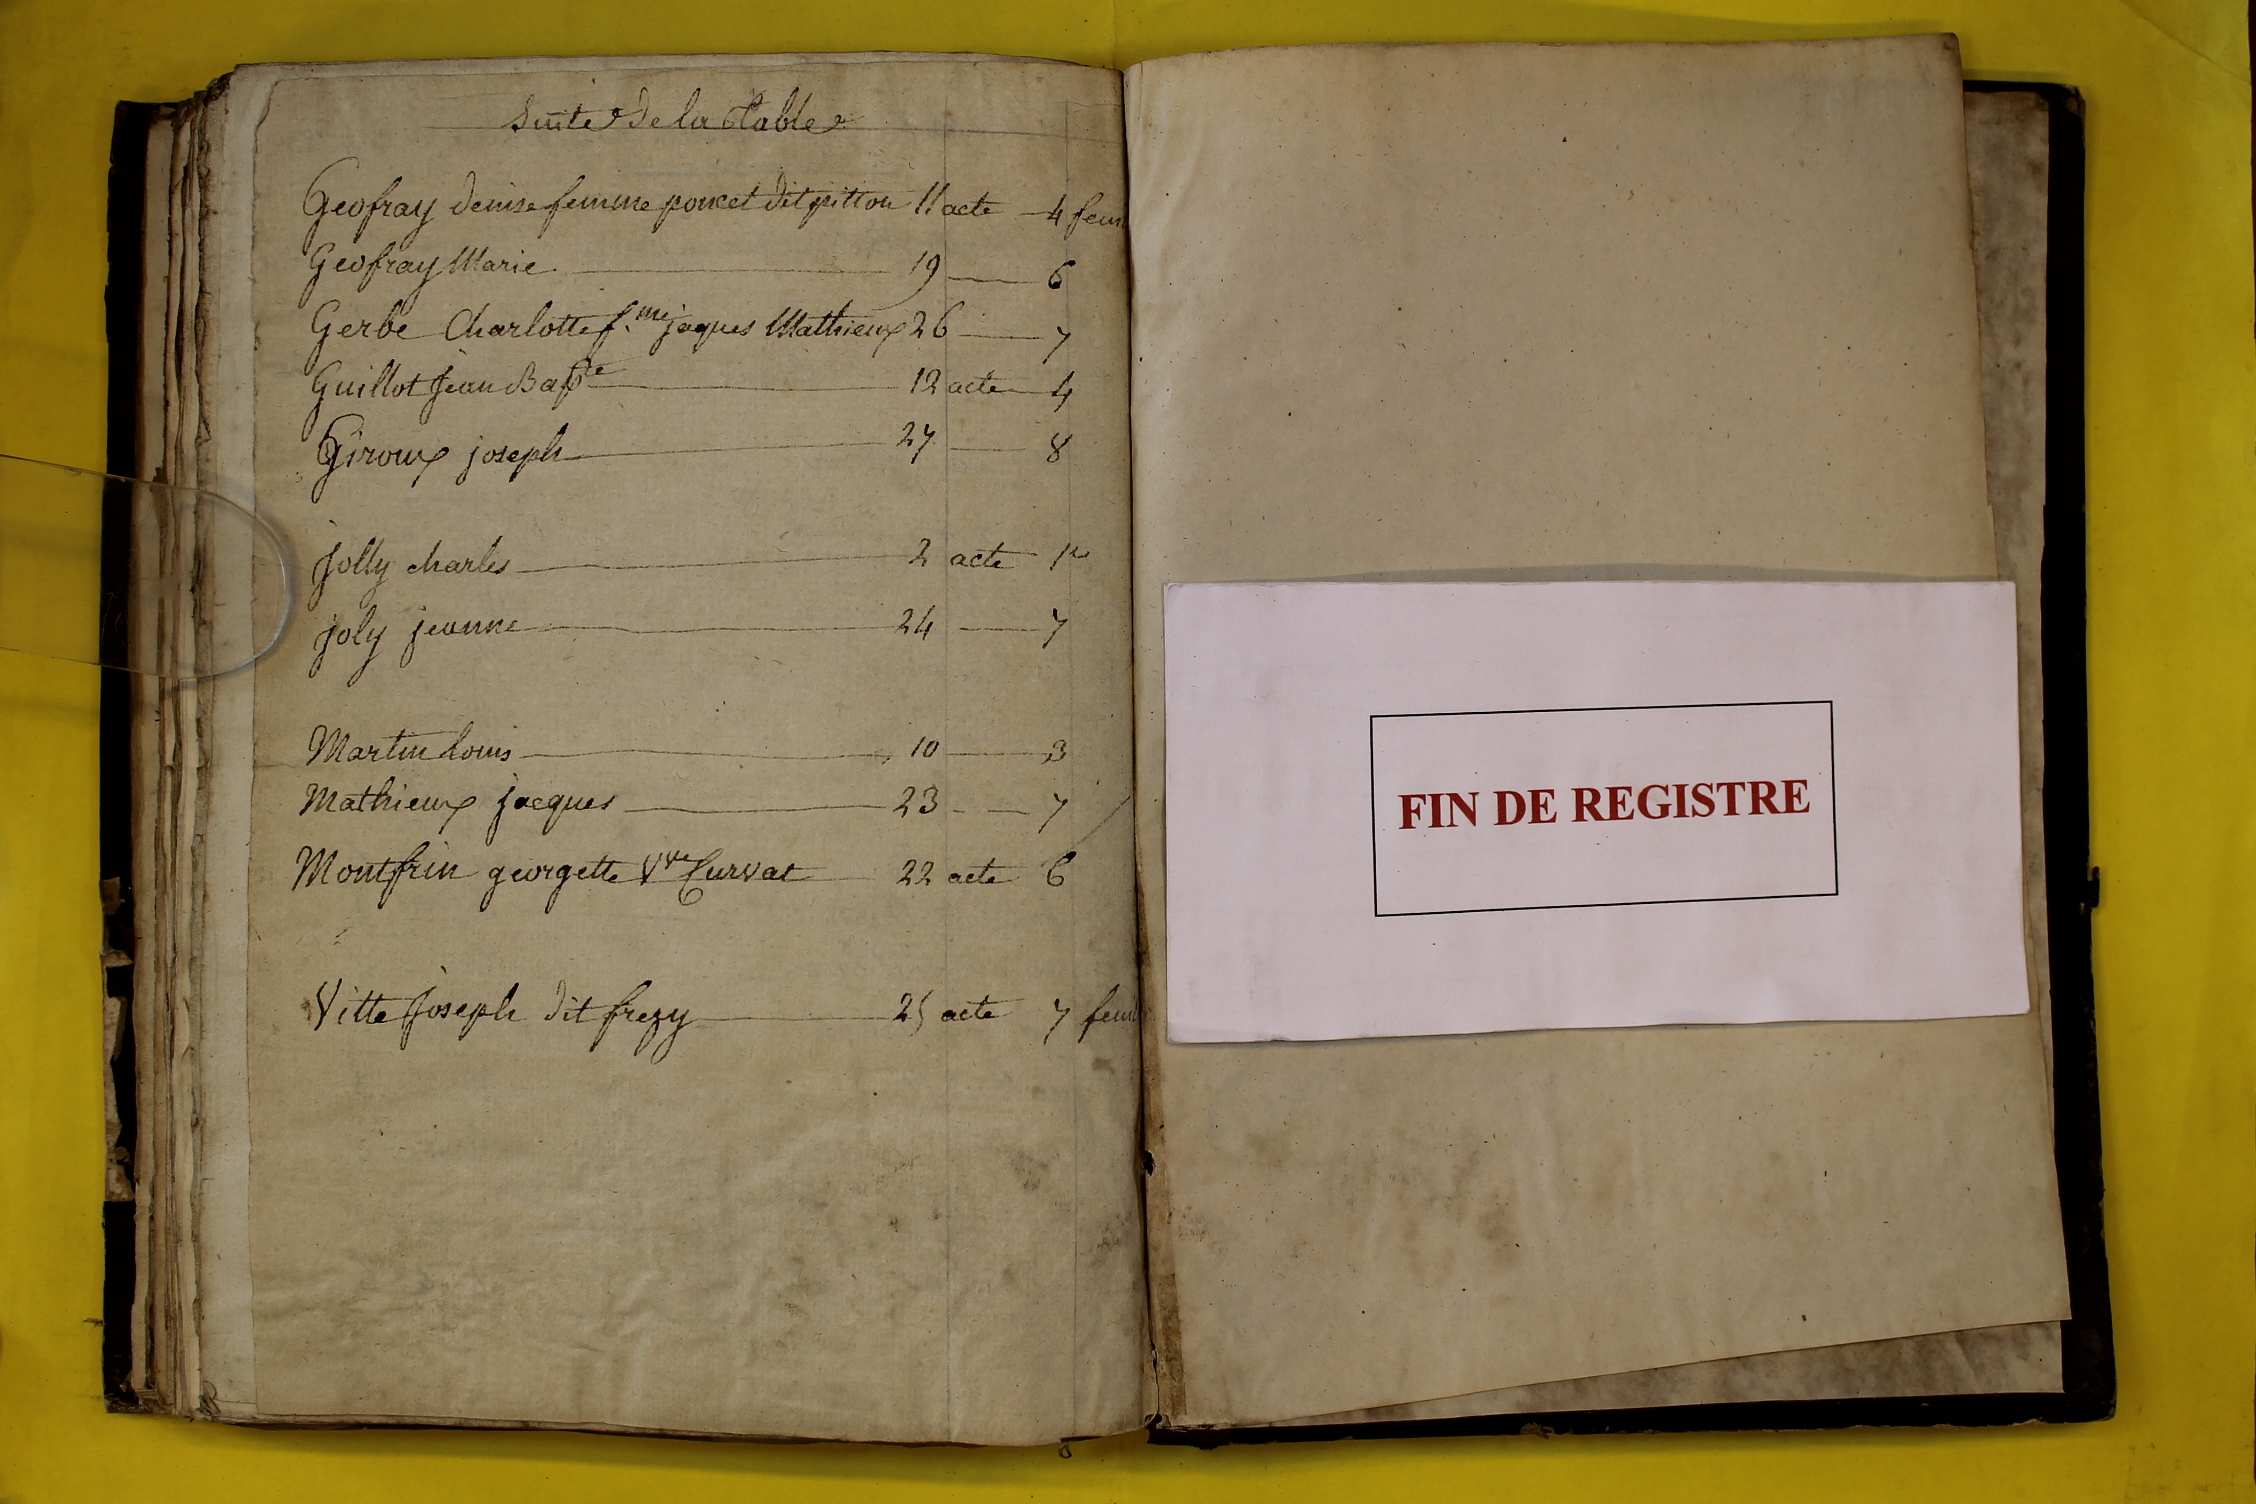 Suite de la Table
Geofray denise femme poncet dit pitton 11 acte 4 feui
Geofray Marie 19 6
Gerbe Charlotte f.me jaques Mathieux 26 7
Guillot Jean Bapte 12 acte 4
Giroux joseph 27 8
Jolly charles 2 acte 1r
joly jeanne 24 7
Martin Louis 10 3
Mathieux jacques 23 7
Montfrin georgette Vve Curvat 22 acte 6
Vitte Joseph dit frezy 25 acte 7 feui
FIN DE REGISTRE